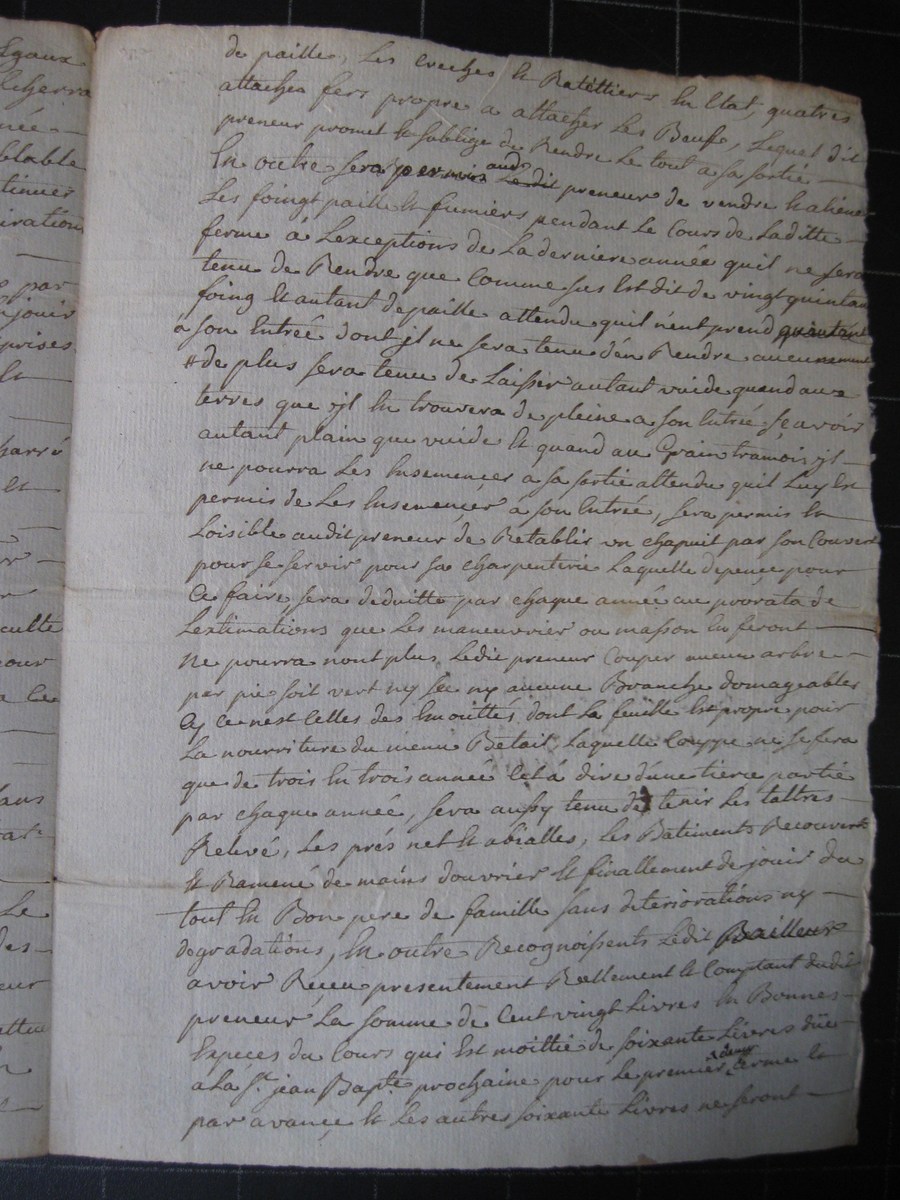 Egaux
Echerra
née
blable
tinuer
irations
par
jouir
prises
Et
harré
et
culte
our
a Ce
ans
Le
des
eur
de paille, Les Creches Et Ratelliers En Etat, quatres
attaches fers propre a attacher Les Beufs, Lequel dit
preneur promet Et soblige de Rendre Le tout a sa sortie
En outre sera permis audit Ledit preneur de vendre Et aliéner
Les foingt paille Et fumiers pendant Le Cours de Laditte
ferme à Lexceptions de La derniere année quil ne sera
tenu de Rendre que Comme sus Est dit de vingt quintau
foing Et autant de paille attendu quil n'ent prend quintaut
à son Entrée dont jl ne sera tenu d'en Rendre aucunement
# de plus sera tenu de Laisser autant vuide quand aux
terres que jl En trouvera de pleine a son Entrée sçavoir
autant plain que vuide Et quand au Grain tramois, jl
ne pourra Les Ensemencer a sa sortie attendu quil Luy Est
permis de Les Ensemençer à son Entrée, sera permis Et
Loisible audit preneur de Retablir un chapuit par son Couvert
pour se servir pour sa Charpenterie Laquelle depence pour
Ce faire sera deduitte par chaque année au prorata de
Lestimations que Les maneuvrier ou masson En feront
Ne pourra nont plus Ledit preneur Couper aucun arbre
par pie soit vert ny sec ny aucune Branche domageables
Cy Ce nest Celles des Emouttés dont La feuille Est propre pour
La nourriture du menu Betail, Laquelle Couppe ne se fera
que de trois En trois année C'et à dire d'une tierce partie
par chaque année, sera aussy tenu de tenir Les tattres
Relevé, Les prés net Et abialles, Les Batiments Recouverts
Et Ramené de mains d'ouvrier Et finallement de jouir du
tout En Bon pere de famille sans deteriorations ny
degradations, En outre Recognoissents Ledit Bailleur
avoir Reçeu presentement Reellement Et Comptant dudit
preneur La somme de Cent vingt Livres En Bonnes
Especes du Cours qui Est moittié de soixante Livres düe
a La St. jean Bapte. prochaine pour Le premier terme Et
par avançe Et Les autres soixante Livres ne seront